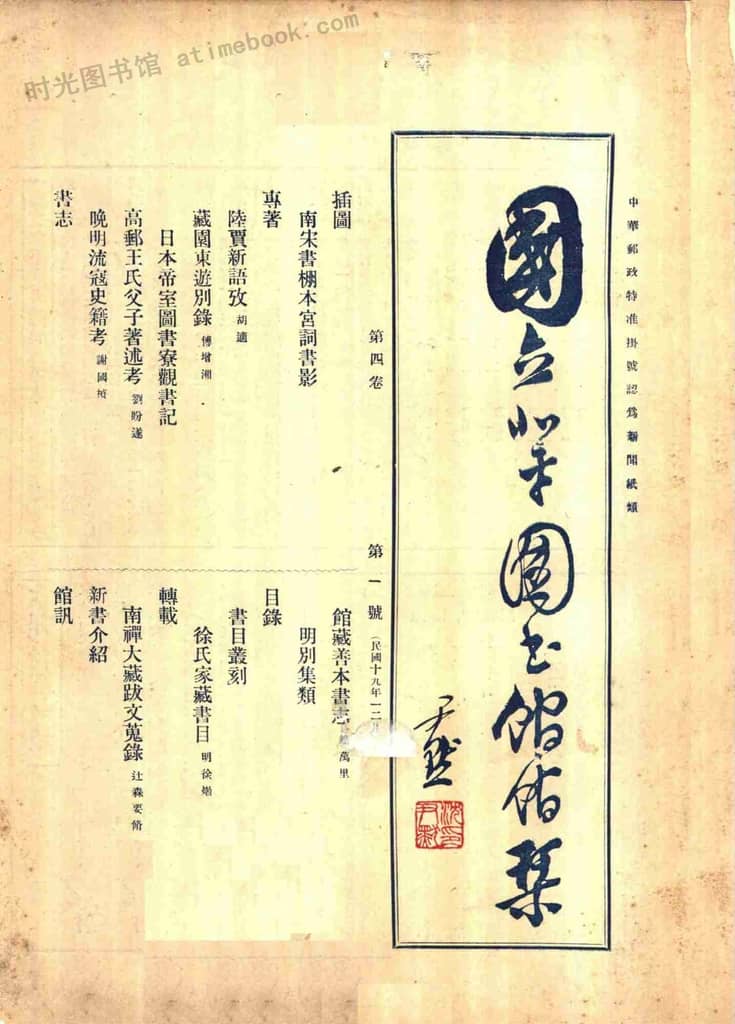 时光图书馆 atimebook.com
中華郵政特准掛號認爲新聞紙類
國立北平圖書館館刊
尹默
沈尹默印
第四卷 第一號 (民國十九年一二月
插圖
南宋書棚本宮詞書影
專著
陸賈新語攷 胡適
藏園東遊別錄 傅增湘
日本帝室圖書寮觀書記
高郵王氏父子著述考 劉盼遂
晚明流寇史籍考 謝國楨
書志
館藏善本書志 萬里
明別集類
目錄
書目叢刻
徐氏家藏書目 明徐𤊹
轉載
南禪大藏跋文蒐錄 辻森要脩
新書介紹
館訊